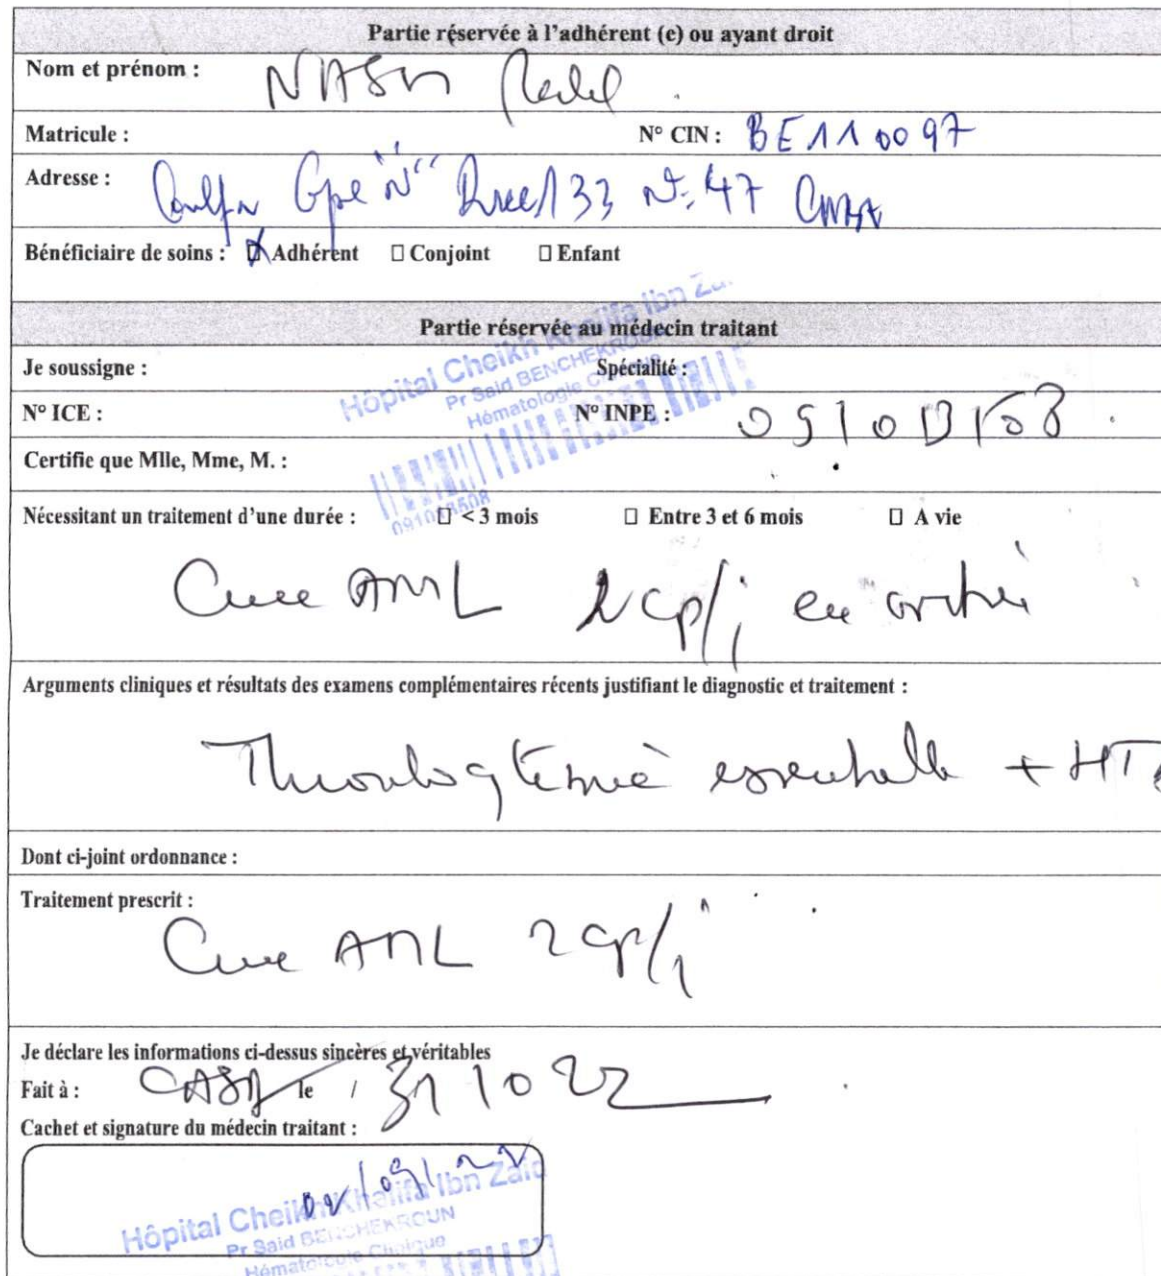 Partie réservée à l'adhérent (e) ou ayant droit
Nom et prénom : NASH
Matricule : N° CIN : BE110097
Adresse : Gpe "N" 133 N° 47 CASA
Bénéficiaire de soins : ☒ Adhérent ☐ Conjoint ☐ Enfant
Partie réservée au médecin traitant
Hôpital Cheikh Khalifa Ibn Za
Pr Said BENCHEKROUN
Hématologie Clinique
Je soussigne : Spécialité :
N° ICE : N° INPE :
Certifie que Mlle, Mme, M. :
Nécessitant un traitement d'une durée : ☐ < 3 mois ☐ Entre 3 et 6 mois ☐ A vie
AML 2 cp/j en
Arguments cliniques et résultats des examens complémentaires récents justifiant le diagnostic et traitement :
essentielle + HTA
Dont ci-joint ordonnance :
Traitement prescrit :
AML 2 cp/j
Je déclare les informations ci-dessus sincères et véritables
Fait à : CASA le / 31 10 22
Cachet et signature du médecin traitant :
Hôpital Cheikh Khalifa Ibn Zaid
Pr Said BENCHEKROUN
Hématologie Clinique